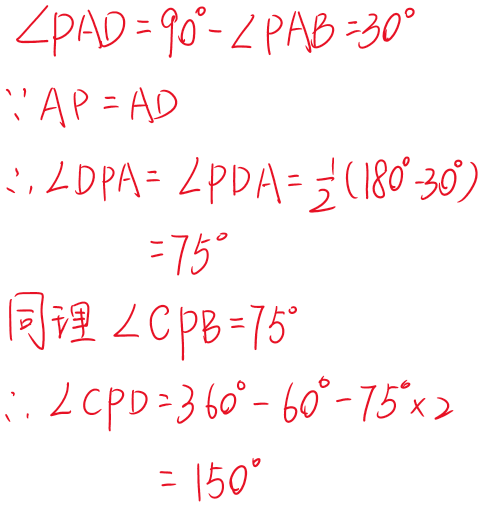 ∠PAD=90°-∠PAB=30°
∵AP=AD
∴∠DPA=∠PDA=1/2(180°-30°)
=75°
同理 ∠CPB=75°
∴∠CPD=360°-60°-75°×2
=150°